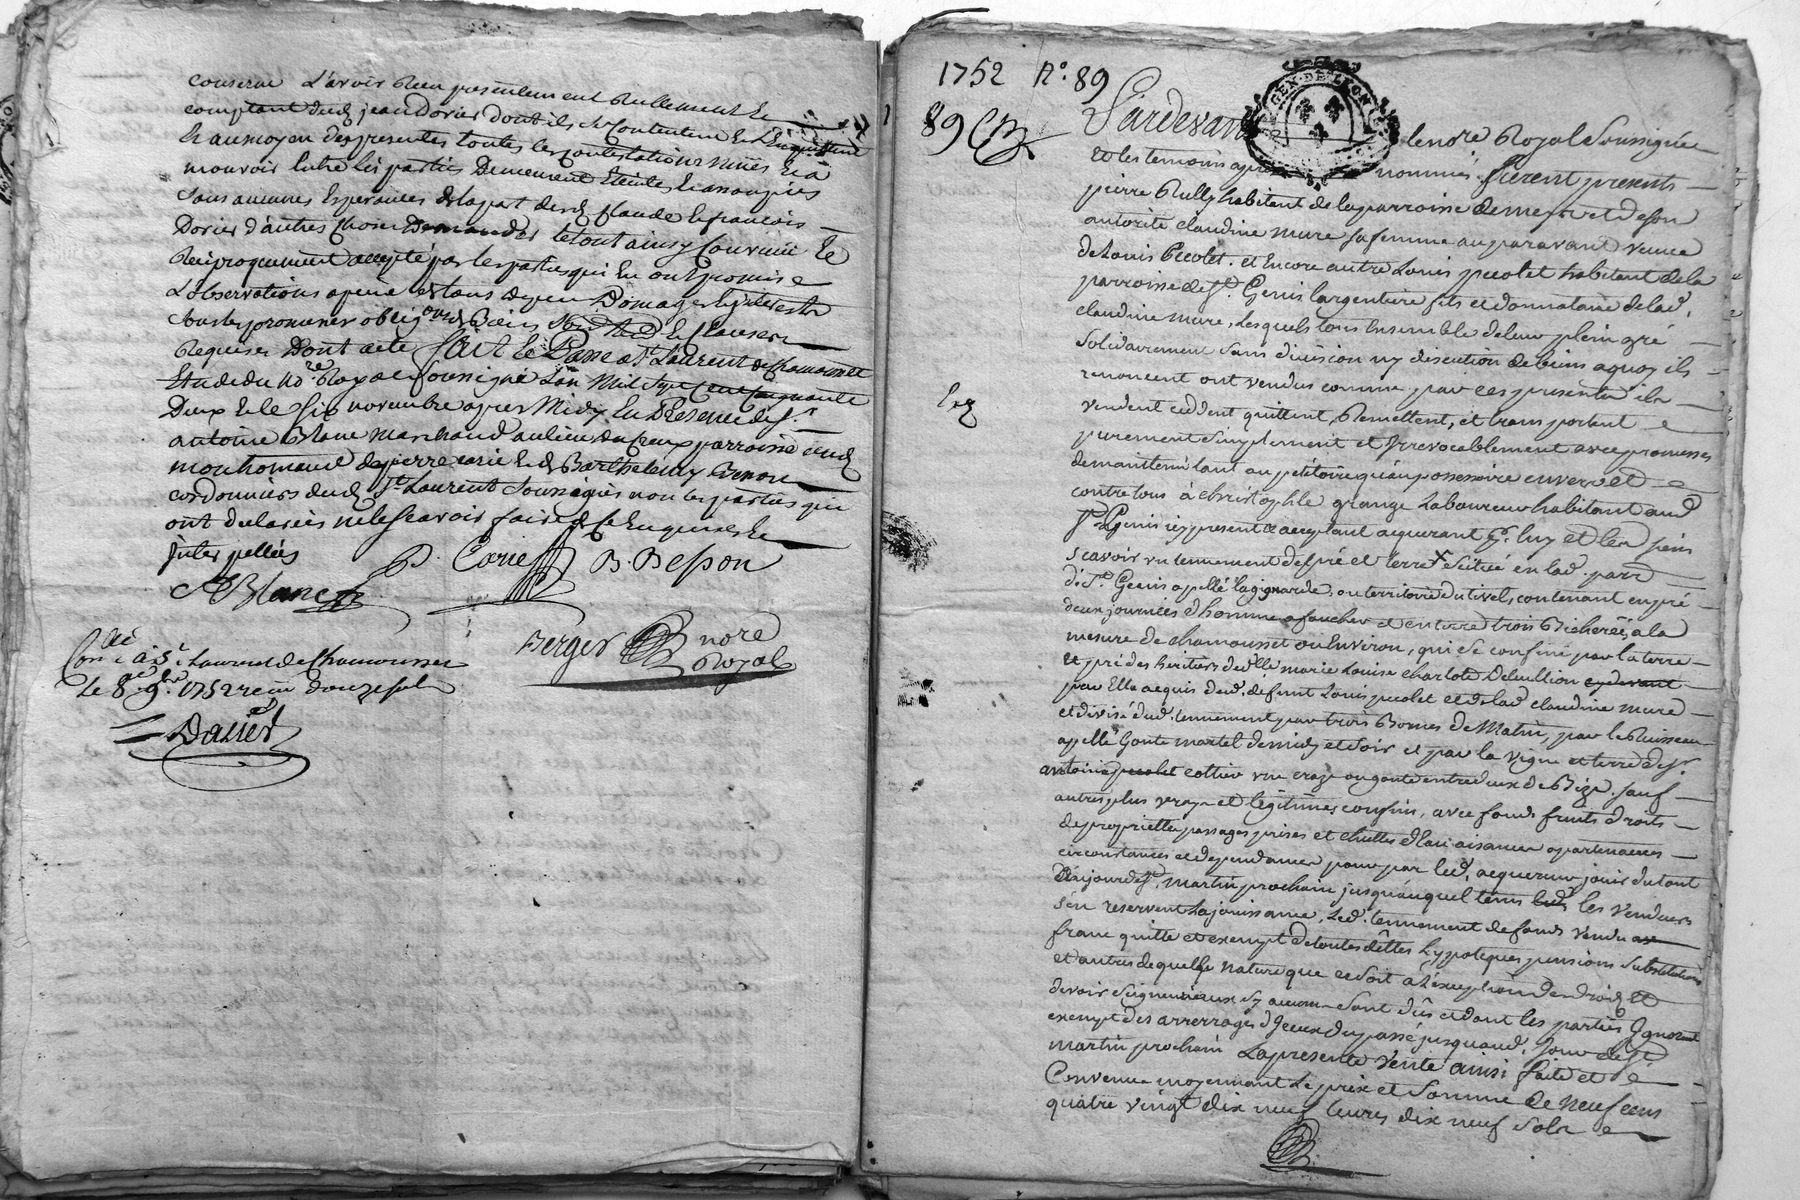 conserne L'avoir Reçu presentement Reellement
comptant dud jean Dorier dont ils se Contentent
Et au moyen des presentes toutes les contestations mües Et a
mouvoir Entre les parties Demeurent Eteintes Et assoupies
Sans aucunes Esperances de la part desd Claude Et francois
Dorier d'autres Choses Demander le tout ainsy Convenu Et
Reciproquement accepté par les parties qui En ont promis
L'observations a peine de tous depens Domages interests
sous les promesses oblig.ons Biens Et Clauses
Requises Dont acte fait Et Passé a St Laurent de Chamousset
Etude du No.re Royal Soussigné L'an Mil Sept Cent Cinquante
Deux Et le six novembre apres Midy En Presence de Sr
antoine Blanc Marchand au lieu du parroisse dud
de pierre carie Et de Barthelemy Besson
cordonniers dud St Laurent Soussignés non les parties qui
ont declarés ne le Scavoir faire de ce Enquises Et
jnterpellées
P. Carie B. Besson
A Blanc
Berger nore
Royal
Con.lé a St Laurent de Chamousset
Le 8e 9bre 1752 receu douze sols
Dalier
1752 N.o 89
89
GEN. DE LYON
Pardevant le nore Royal Soussignée
Et les temoins apres nommés furent presents
pierre Rully habitant de la parroisse de et de son
autorité claudine mure sa femme auparavant veuve
de Louis Pecolet. et Encore autre Louis pecolet habitant de la
parroisse de St. Genis largentiere fils et donnataire de lad.
claudine mure, Lesquels tous Ensemble de leur plein gré
solidairement sans division ny discution de biens a quoy ils
renoncent ont vendus comme par ces presentes ils
Vendent cedent quittent, Remettent, et transportent
purement simplement et Irrevocablement avec promesses
de maintenir tant au petitoire qu'au possessoire envers et
contre tous à christophle grange Laboureur habitant aud
St. Genis icy present et acceptant acquerant pr. luy et les siens
scavoir un tennement de pré et terre Scitué en lad. parr
de St. Genis appellé la gignarde, ou territoire du tivel, contenant en pré
deux journées d'homme a faucher et en terre trois Bicherées a la
mesure de chamousset ou Environ, qui se confine par la terre
Et pré des heritiers de dlle. marie Louise charlote Deleullion cydevant
par Elle acquis dud. defunt Louis pecolet et de lad claudine mure
et divisé dud. tennement par trois Bornes de Matin, par le Ruisseau
appellé Gonte martel de midy et soir et par la vigne et terre de Sr.
antoine pecolet cottier une craze ou gonte entre deux de Bize. sauf
autres plus vrays et legitimes confins, avec fonds fruits droits
de proprietté passages prises et chuttes d'Eau aisances apartenances
circonstances et dependances pour par led. acquereur jouir du tout
Dhujourdhuy St. martin prochain jusqu'auquel tems les vendeurs
s'en reservent La jouissance, Led. tennement de fonds vendu
franc quitte et exempt de toutes dêttes hypoteques pensions substitutions
et autres de quelle nature que ce soit a L'exception des droits Et
devoirs Seigneuriaux sy aucuns sont dûs et dont les parties Ignorent
exempt des arrerrages d'Jceux du passé jusqu'aud. Jour de St
martin prochain La presente vente ainsi faite et
Convenue moyennant Le prix et Somme de neuf cens
quatre vingt dix neuf livres dix neuf sols